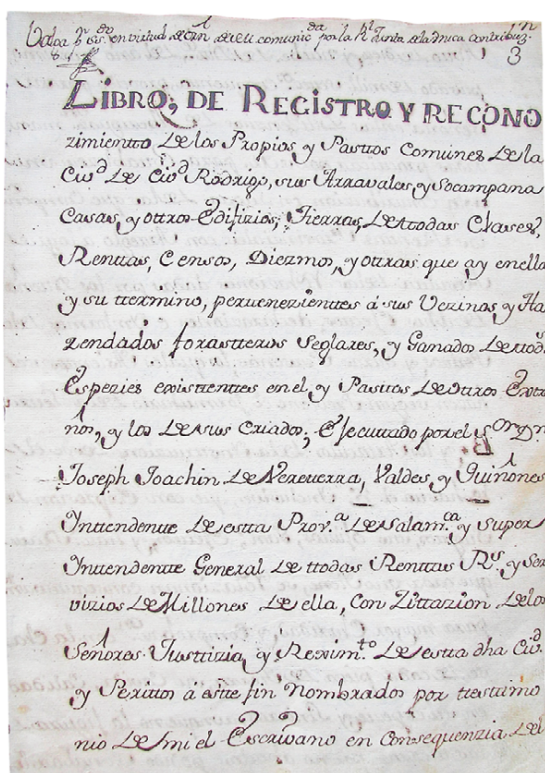 Valga pr. sis. en virtud de orn. de seu comunicda. por la Rl. Junta de la Unica contribuzn.
3
LIBRO, DE REGISTRO Y RECONO
zimientto De los Propios, y Pastos Comunes De la
Ciud. De Ciud. Rodrigo, sus Arravales, y Socampana
Casas, y ottros Edifizios, Tierras, De ttodas Clases,
Renttas, Censos, Diezmos, y ottras que ay en ella
y su ttermino, perttenezienttes á sus Vezinos, y Ha
zendados forastteros Seglares, y Ganados De ttods.
Espezies existtenttes en el, y Pasttos De Ottros Extra
ños, y los De sus Criados, Ejecuttado por el Sor. Dn.
Joseph Joachin De Vereterra, Valdes, y Quiñones
Inttendentte De estta Prova. De Salamca. y Super
Inttendentte General De ttodas Renttas Rs. y Ser
vizios De Millones De ella, Con Zittazion De los
Señores Justtizia, y Reximto. De estta dha Ciud.
y Perittos á estte fin Nombrados por testtimo
nio De mi el Escrivano en Consequenzia del